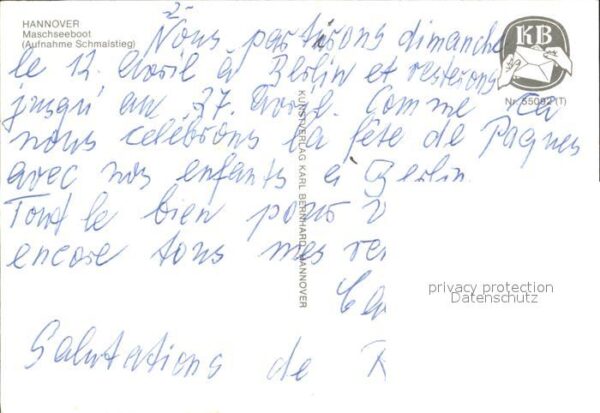 HANNOVER
Maschseeboot
(Aufnahme Schmalstieg)
-2-
KB
Nr. 55092 (T)
Nous partirons dimanche
le 12. Avril à Berlin et resterons
jusqu'au 27. Avril. Comme ça
nous célébrons la fête de Paques
avec nos enfants à Berlin.
Tout le bien pour
encore tous mes
Salutations de
KUNSTVERLAG KARL BERNHARD HANNOVER
privacy protection
Datenschutz